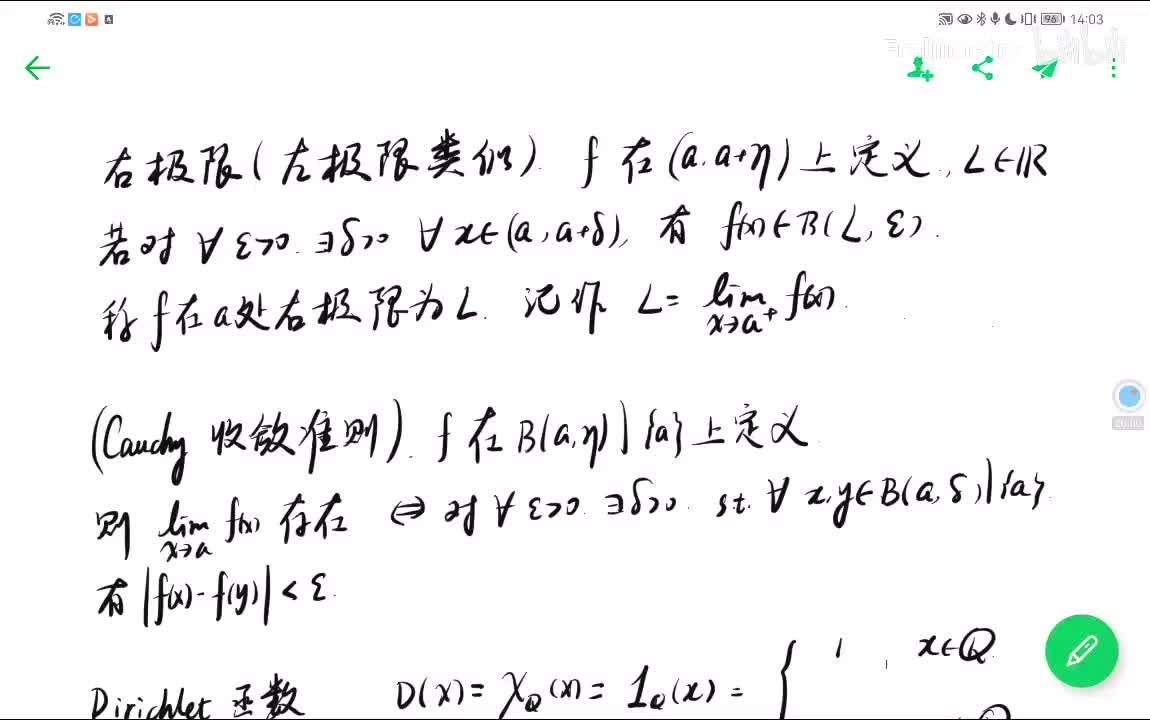 96 14:03
bilibili
右极限(左极限类似). f 在 (a, a+η) 上定义, L∈ℝ
若对 ∀ε>0. ∃δ>0 ∀x∈(a, a+δ), 有 f(x)∈B(L, ε).
称 f 在 a 处右极限为 L. 记作 L = lim_{x→a⁺} f(x).
(Cauchy 收敛准则). f 在 B(a,η)\{a} 上定义
则 lim_{x→a} f(x) 存在 ⇔ 对 ∀ε>0. ∃δ>0. s.t. ∀ x,y∈B(a, δ)\{a}.
有 |f(x)-f(y)| < ε.
Dirichlet 函数 D(x) = χ_Q(x) = 1_Q(x) = { 1 , x∈Q